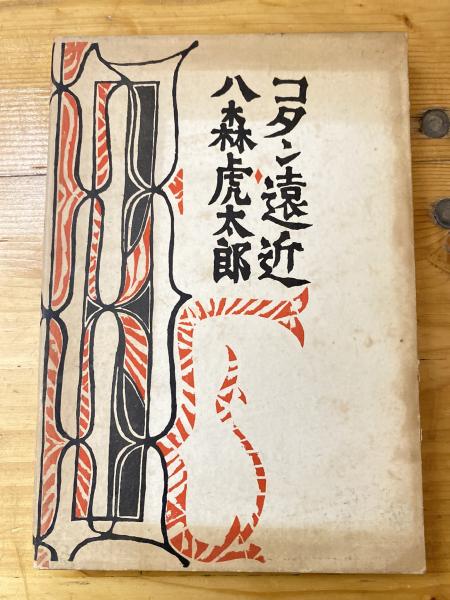 コタン遠近
八森虎太郎